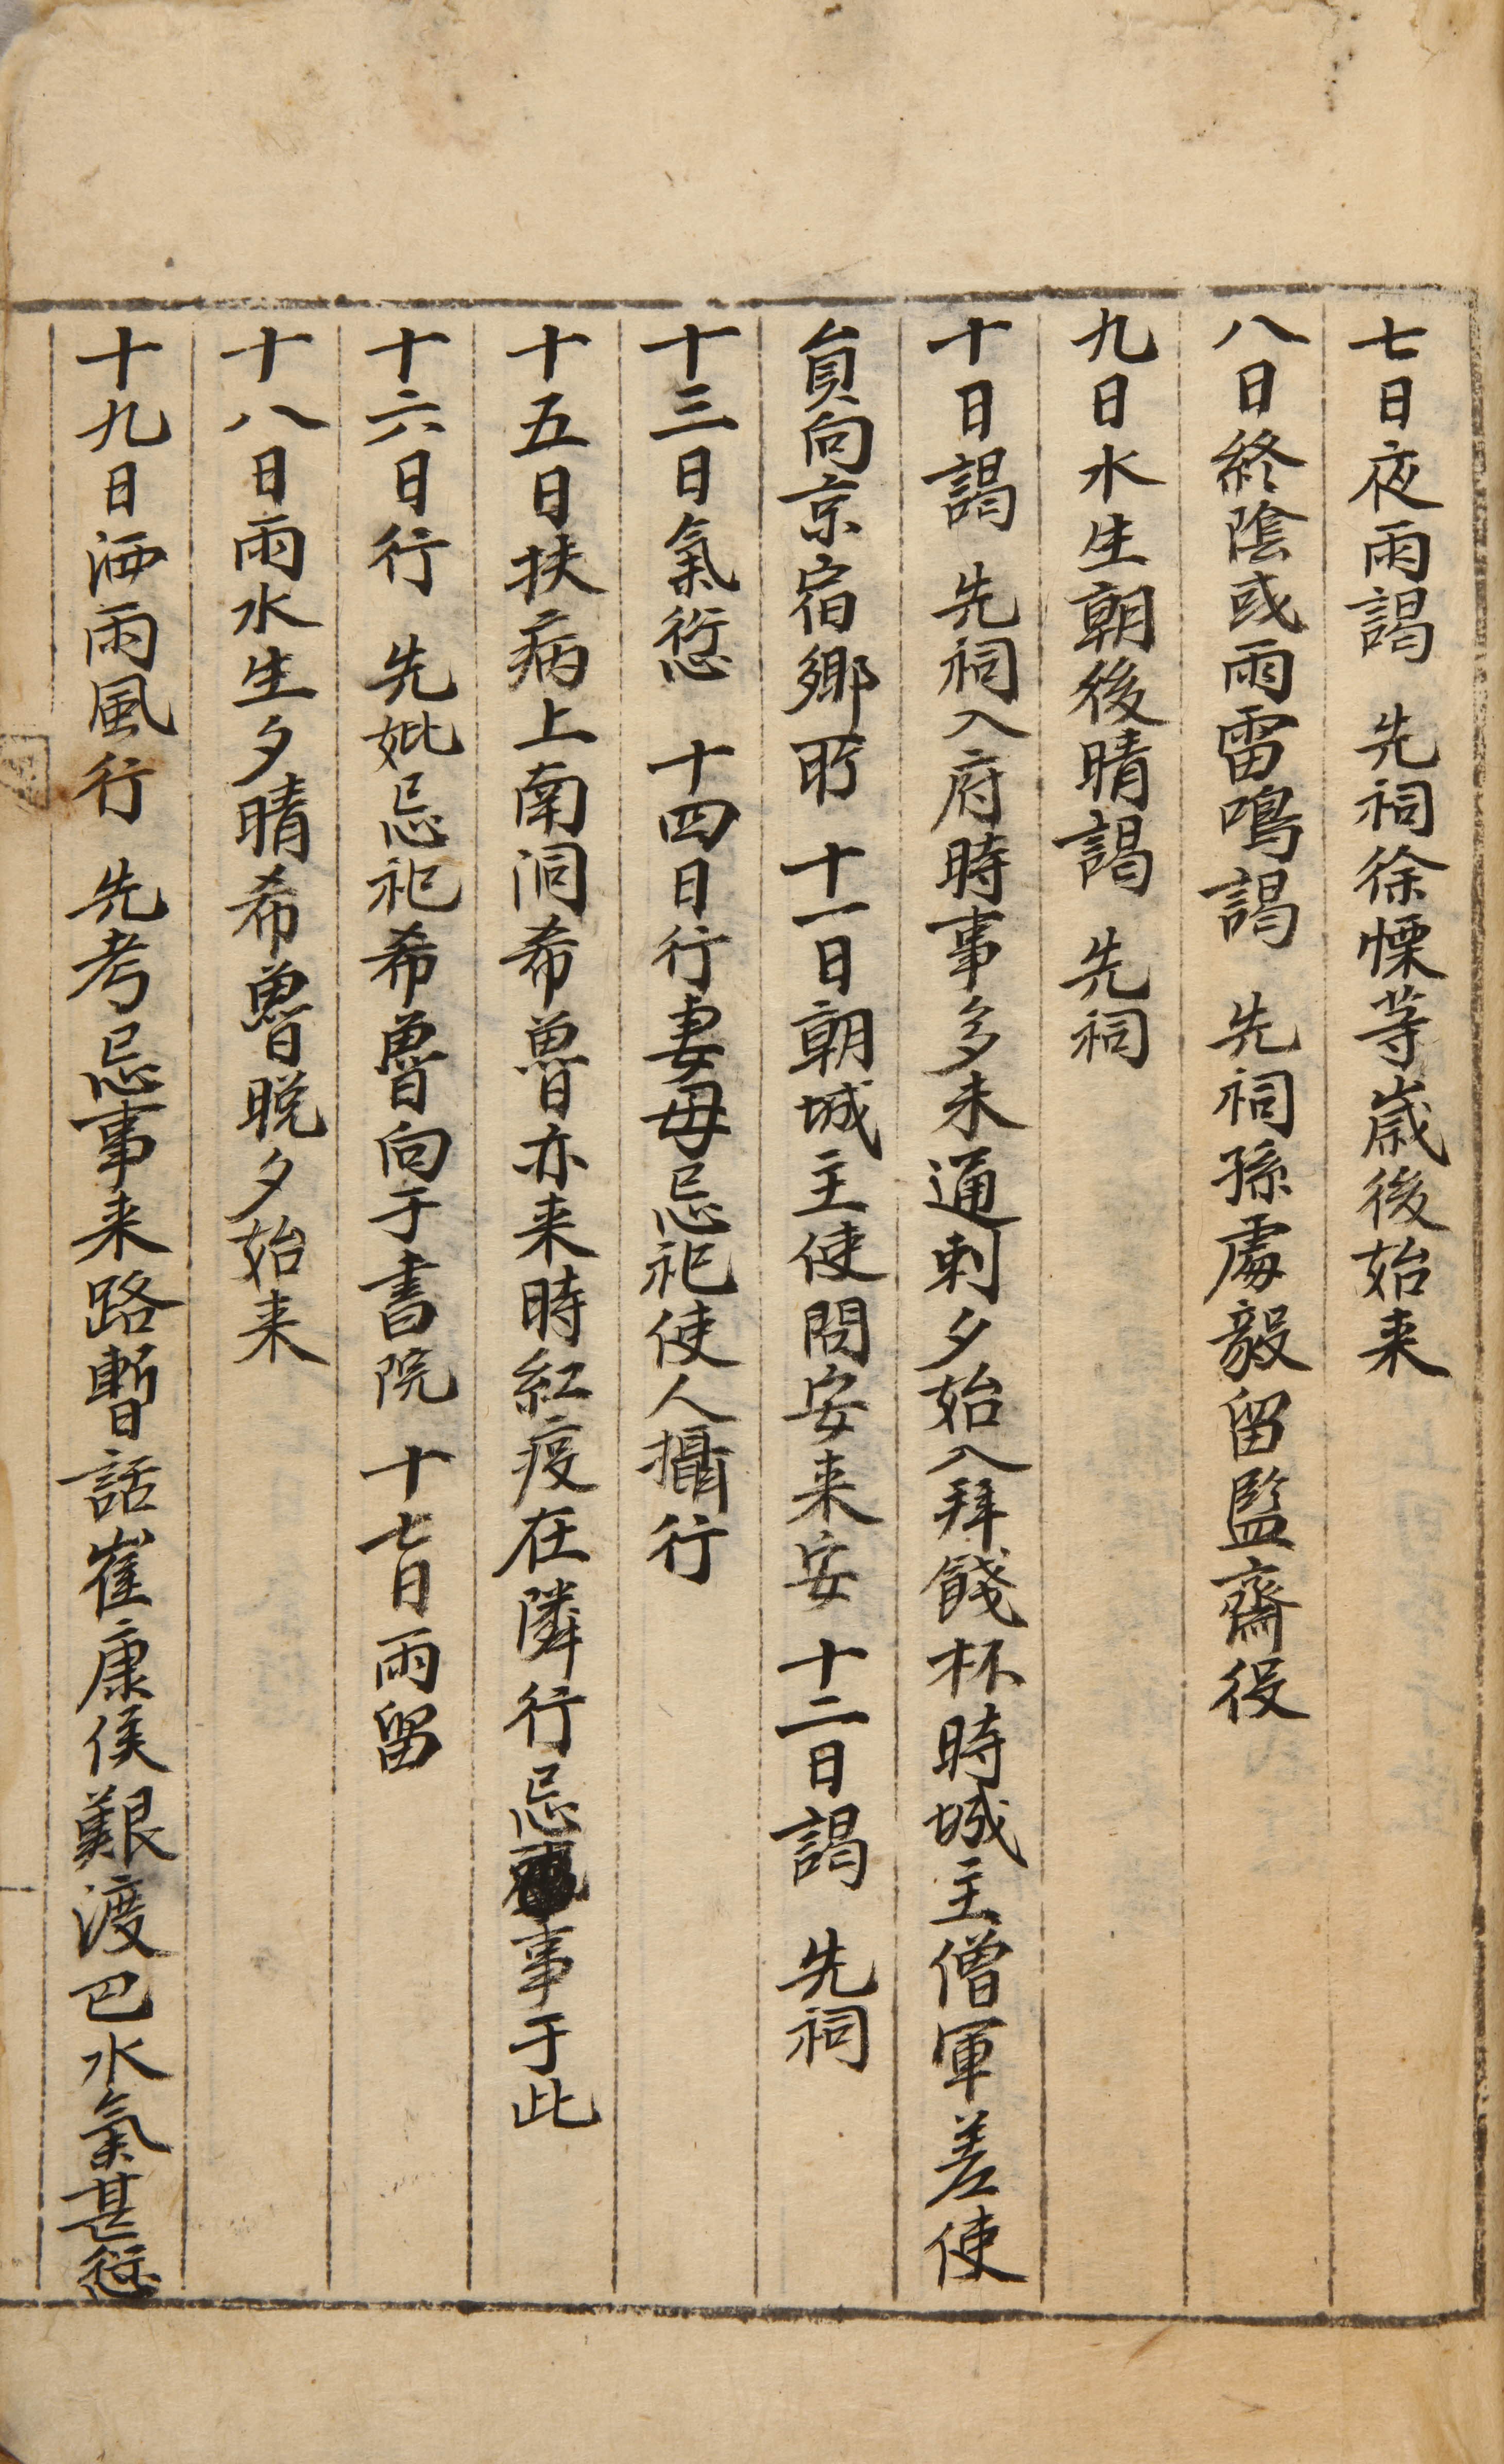 七日夜雨謁 先祠徐慄等歲後始来
八日終陰或雨雷鳴謁 先祠孫處毅留監齋役
九日水生朝後晴謁 先祠
十日謁 先祠入府時事多未通刺夕始入拜餞杯時城主僧軍差使
負向京宿鄉所 十一日朝城主使問安来安 十二日謁 先祠
十三日氣愆 十四日行妻母忌祀使人攝行
十五日扶病上南洞希魯亦来時紅疫在隣行忌事于此
十六日行 先妣忌祀希魯向于書院 十七日雨留
十八日雨水生夕晴希魯晚夕始来
十九日洒雨風行 先考忌事来路暫話崔康侯艱渡巴水氣甚愆